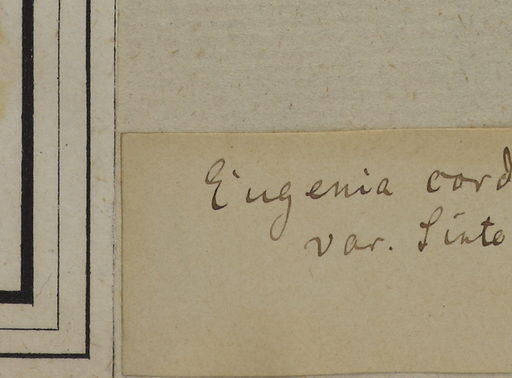 Eugenia cord
var. Sinte